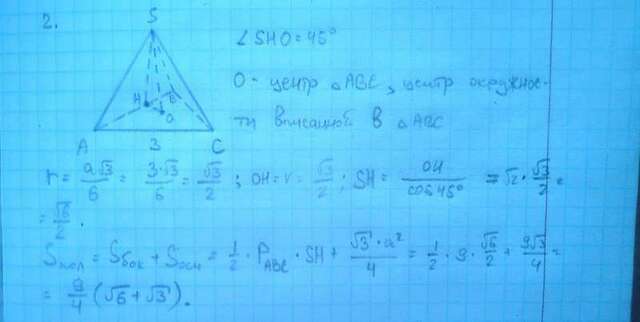 2.
S
∠SHO = 45°
O - центр △ABC, центр окружнос-
ти вписаной в △ABC
H
B
O
A
3
C
r = a√3/6 = 3·√3/6 = √3/2 ; OH = r = √3/2 ; SH = OH/cos 45° = √2 · √3/2 =
= √6/2 .
Sпол = Sбок + Sосн = 1/2 · P_ABC · SH + √3·a²/4 = 1/2 · 9 · √6/2 + 9√3/4 =
= 9/4 (√6 + √3).